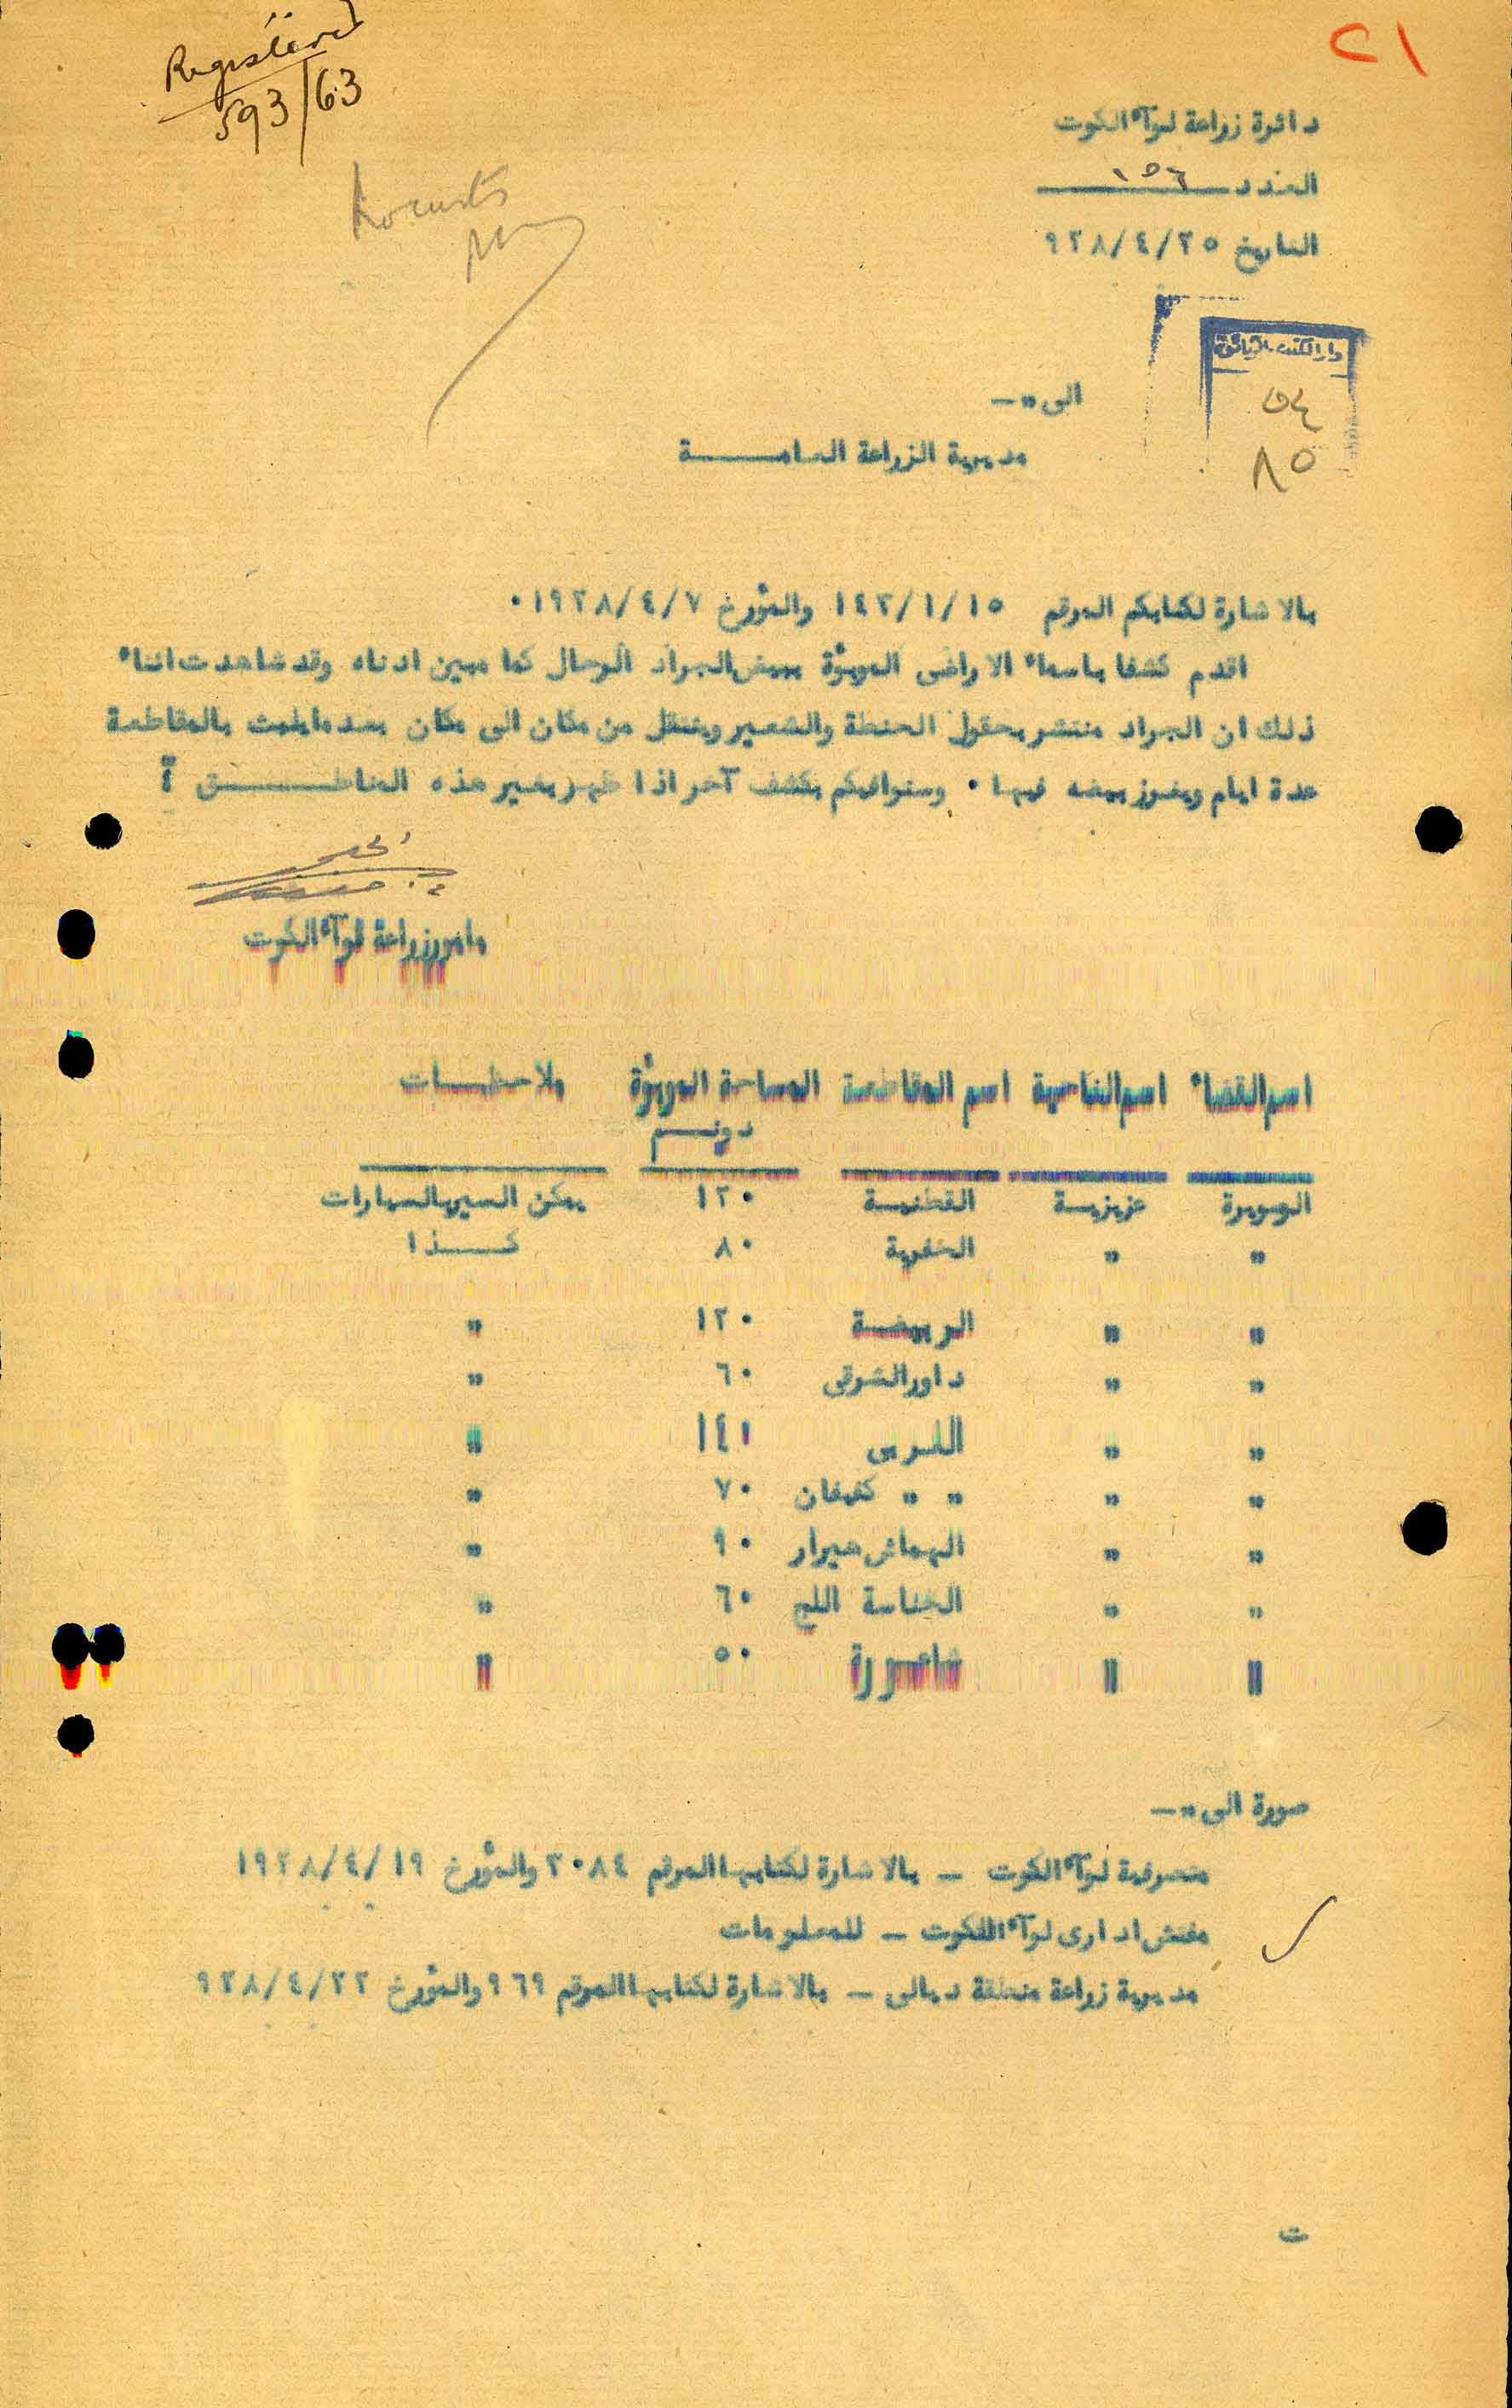 Registered
593/63
٢١
Locusts
دائرة زراعة لوآء الكوت
العدد ١٥٦
التاريخ ٢٥/٤/٩٢٨
دار الكتب والوثائق
٥٤
٨٥
الى :-
مديرية الزراعة العامـــــة
بالاشارة لكتابكم المرقم ١٤٢/١/١٥ والمؤرخ ١٩٢٨/٤/٧ ٠
اقدم كشفا باسماء الاراضى الموبؤة ببيض الجراد الرحال كما مبين ادناه وقد شاهدت اثناء
ذلك ان الجراد منتشر بحقول الحنطة والشعير وينتقل من مكان الى مكان بعد مايلبث بالمقاطعة
عدة ايام ويغرز بيضه فيها ٠ وسنوافيكم بكشف آخر اذا ظهر بغير هذه المناطـــــق
مامور زراعة لوآء الكوت
اسم القضاء اسم الناحية اسم المقاطعة المساحة الموبؤة ملاحظـــات
دونـــم
الصويرة عزيزيـة القطنيـة ١٢٠ يمكن السير بالسيارات
" " الحفرية ٨٠ كـــذا
" " الربيضـة ١٢٠ "
" " داور الشرقى ٦٠ "
" " الغربى ١٤١ "
" " " " كفيفان ٧٠ "
" " الهماش ٩٠ "
" " ٦٠ "
" " ٥٠ "
صورة الى :-
متصرفية لوآء الكوت - بالاشارة لكتابها المرقم ٣٠٨٤ والمؤرخ ١٩٢٨/٤/١٩
مفتش ادارى لوآء الكوت - للمعلومات
مديرية زراعة منطقة ديالى - بالاشارة لكتابها المرقم ٩٦٩ والمؤرخ ٩٢٨/٤/٢٢
ت